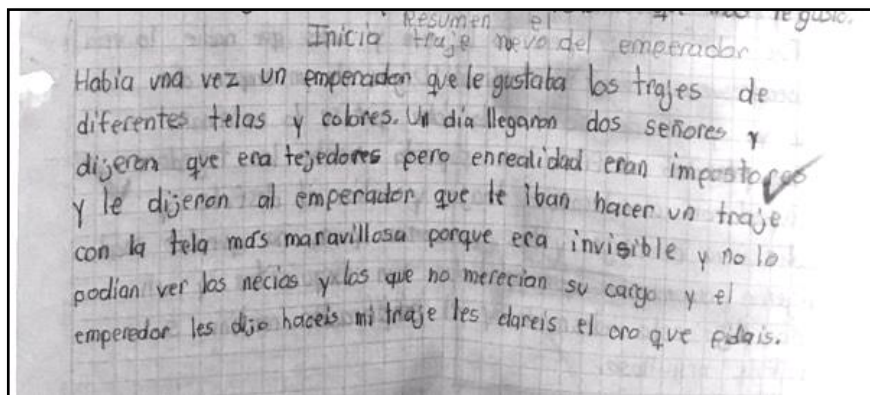 te gusto.
Resumen el
Inicia traje nuevo del emperador
Había una vez un emperador que le gustaba los trajes de
diferentes telas y colores. Un día llegaron dos señores y
dijeron que era tejedores pero enrealidad eran impostores
y le dijeron al emperador que le iban hacer un traje
con la tela más maravillosa porque era invisible y no lo
podían ver los necios y los que no merecían su cargo y el
emperedor les dijo haceis mi traje les dareis el oro que pidais.